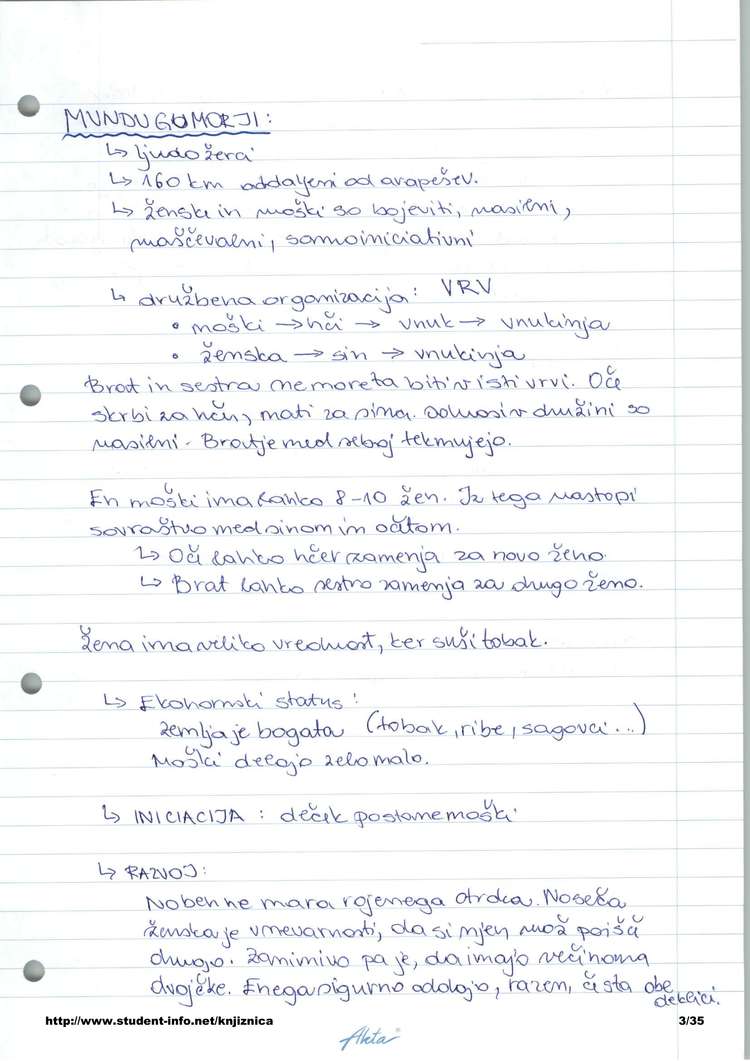 MUNDUGUMORJI:
↳ ljudožerci
↳ 160 km oddaljeni od arapešev.
↳ ženske in moški so bojeviti, nasilni,
maščevalni, samoiniciativni
↳ družbena organizacija: VRV
• moški → hči → vnuk → vnukinja
• ženska → sin → vnukinja
Brat in sestra ne moreta biti v isti vrvi. Oče
skrbi za hčer, mati za sina. Odnosi v družini so
nasilni - Bratje med seboj tekmujejo.
En moški ima lahko 8-10 žen. Iz tega nastopi
sovraštvo med sinom in očetom.
↳ Oče lahko hčer zamenja za novo ženo.
↳ Brat lahko sestro zamenja za drugo ženo.
Žena ima veliko vrednost, ker suši tobak.
↳ Ekonomski status:
zemlja je bogata (tobak, ribe, sagovci...)
Moški delajo zelo malo.
↳ INICIACIJA: deček postane moški
↳ RAZVOJ:
Noben ne mara rojenega otroka. Noseča
ženska je v nevarnosti, da si njen mož poišče
drugo. Zanimivo pa je, da imajo večinoma
dvojčke. Enega sigurno oddajo, razen, če sta obe
deklici.
http://www.student-info.net/knjiznica
3/35
Akta